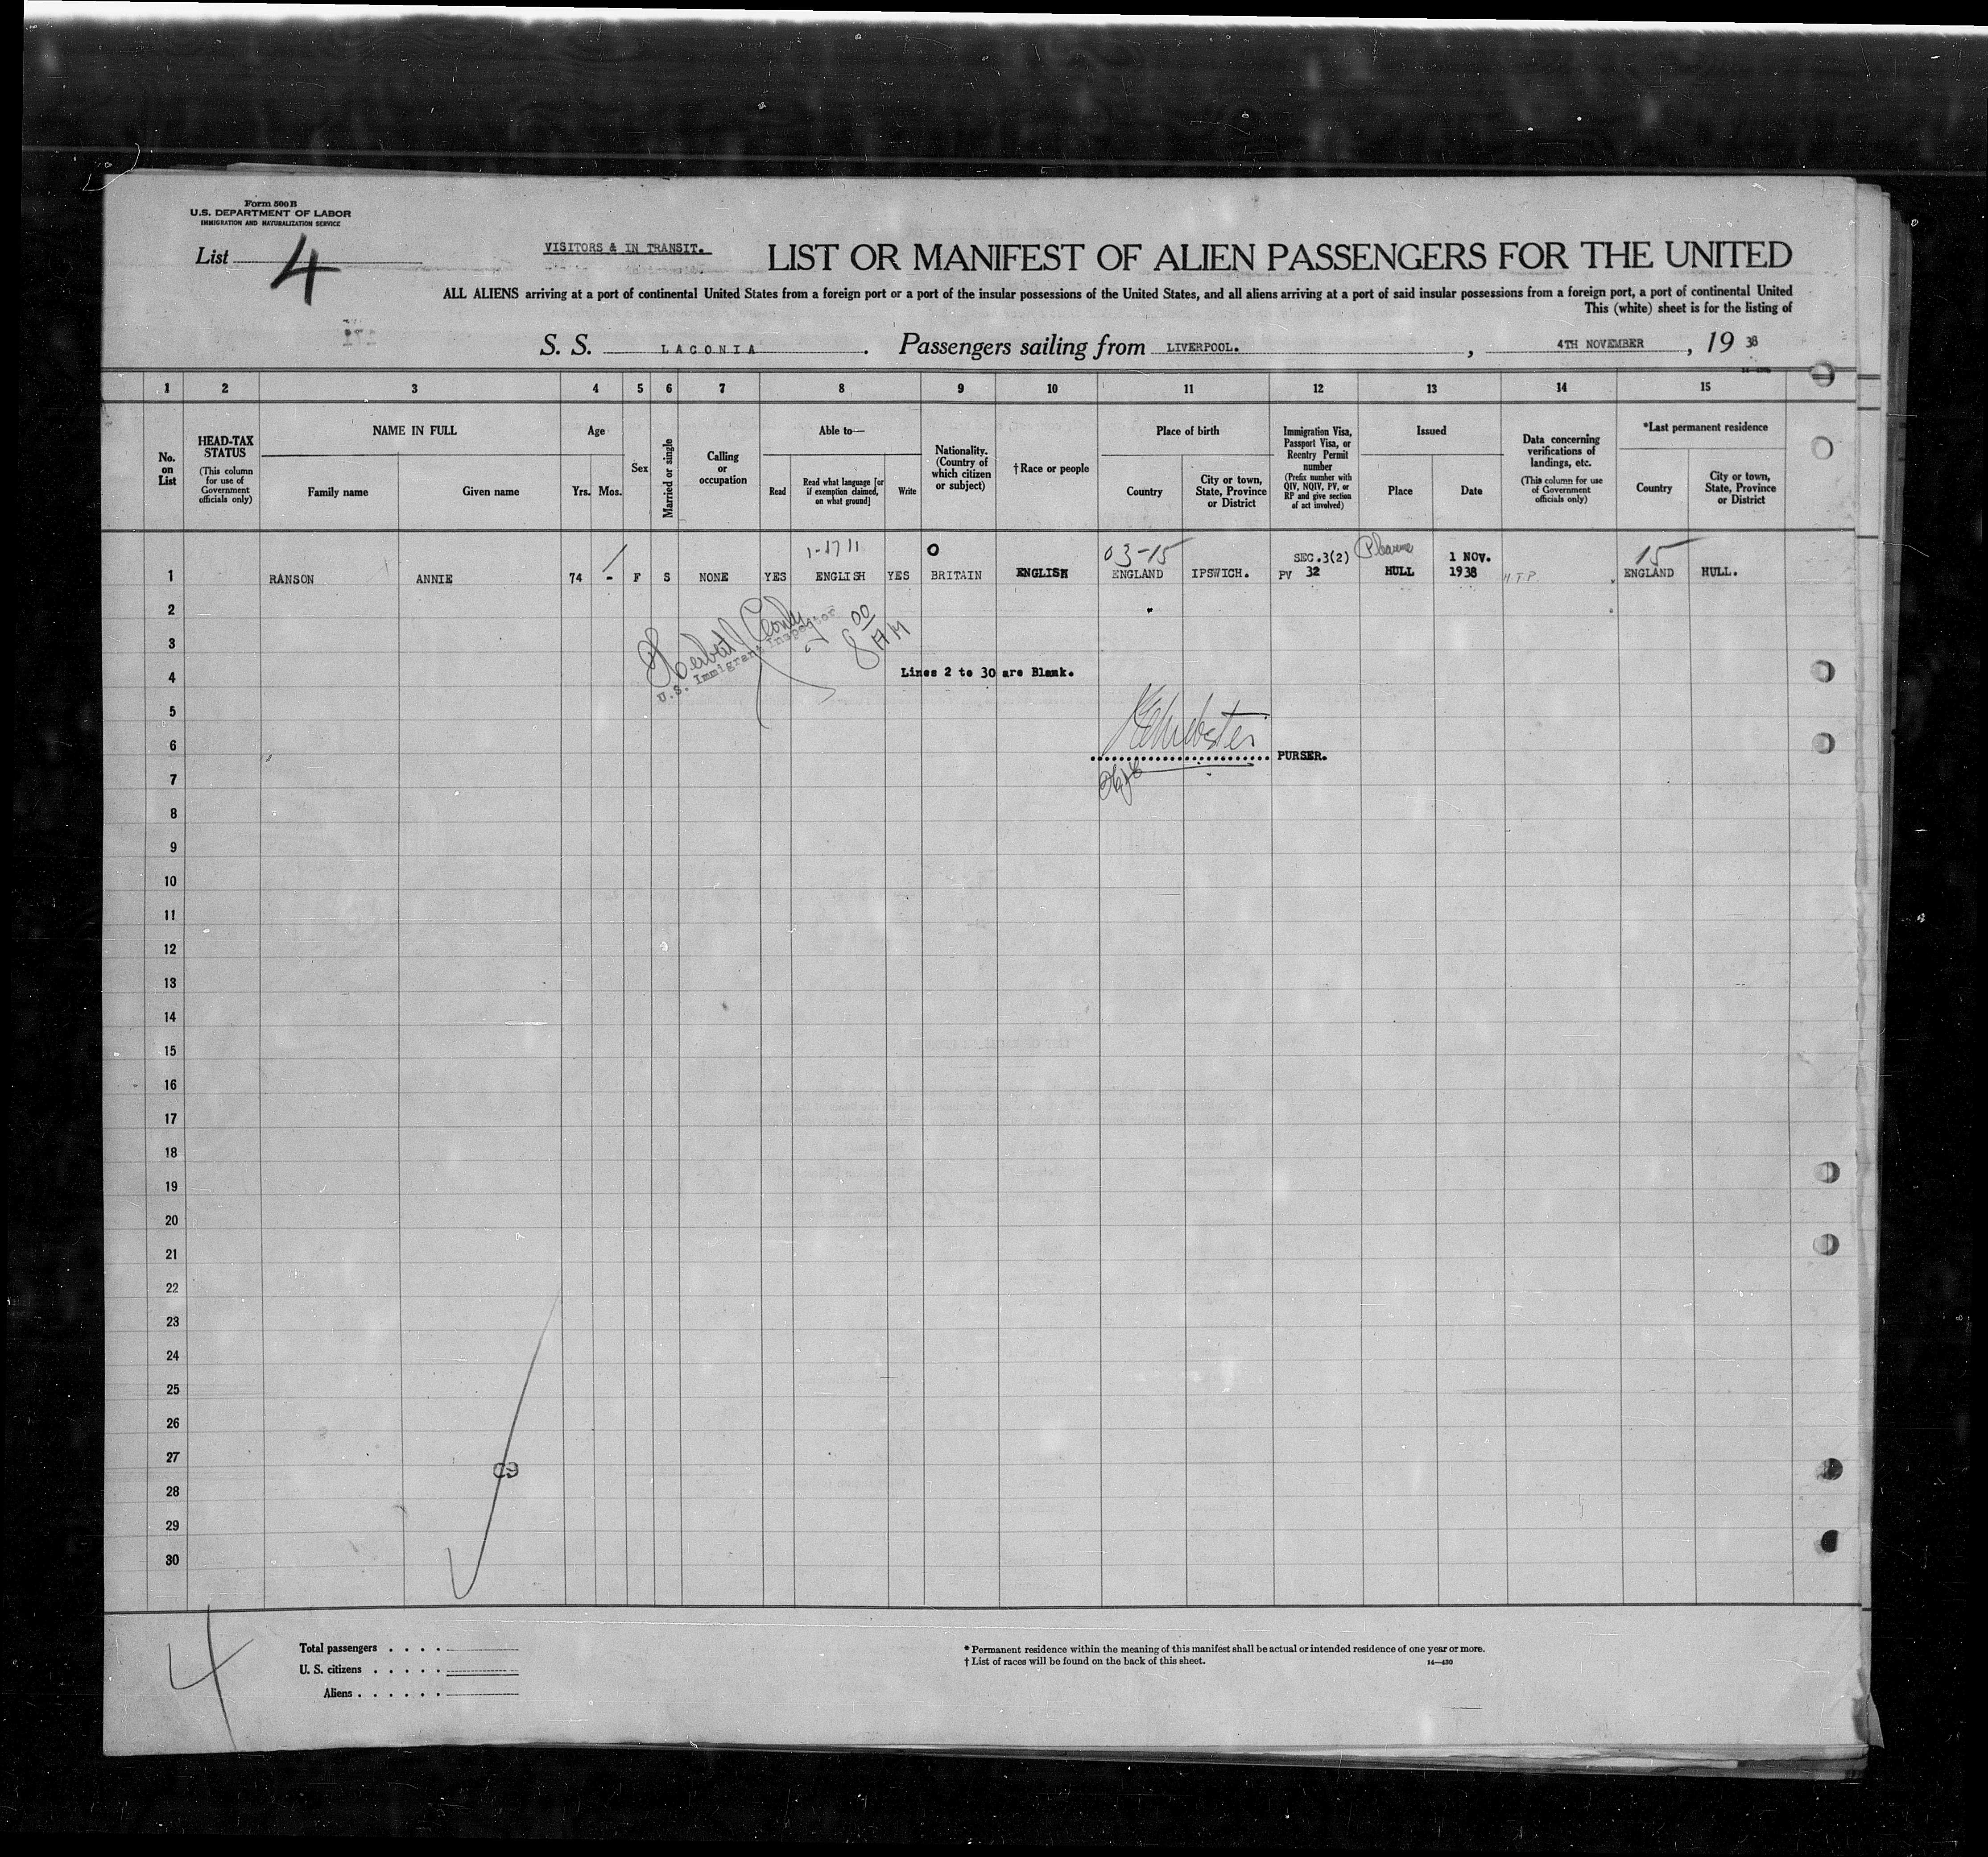 Form 500 B
U.S. DEPARTMENT OF LABOR
IMMIGRATION AND NATURALIZATION SERVICE
List 4
VISITORS & IN TRANSIT.
LIST OR MANIFEST OF ALIEN PASSENGERS FOR THE UNITED
ALL ALIENS arriving at a port of continental United States from a foreign port or a port of the insular possessions of the United States, and all aliens arriving at a port of said insular possessions from a foreign port, a port of continental United
This (white) sheet is for the listing of
S. S. LACONIA. Passengers sailing from LIVERPOOL. , 4TH NOVEMBER , 19 38
1 2 3 4 5 6 7 8 9 10 11 12 13 14 15
No. on List
HEAD-TAX STATUS (This column for use of Government officials only)
NAME IN FULL
Family name
Given name
Age
Yrs. Mos.
Sex
Married or single
Calling or occupation
Able to—
Read
Read what language [or if exemption claimed, on what ground]
Write
Nationality. (Country of which citizen or subject)
†Race or people
Place of birth
Country
City or town, State, Province or District
Immigration Visa, Passport Visa, or Reentry Permit number (Prefix number with QIV, NQIV, PV, or RP and give section of act involved)
Issued
Place
Date
Data concerning verifications of landings, etc. (This column for use of Government officials only)
*Last permanent residence
Country
City or town, State, Province or District
03-15 SEC.3(2) 1 NOV. 15
1 RANSON ANNIE 74 - F S NONE YES ENGLISH YES BRITAIN ENGLISH ENGLAND IPSWICH. PV 32 HULL 1938 H.T.P. ENGLAND HULL.
2
3
U.S. Immigrant Inspector
8 00 AM
4
Lines 2 to 30 are Blank.
5
6
PURSER.
7
8
9
10
11
12
13
14
15
16
17
18
19
20
21
22
23
24
25
26
27
28
29
30
4
Total passengers . . . .
U. S. citizens . . . . .
Aliens . . . . . .
* Permanent residence within the meaning of this manifest shall be actual or intended residence of one year or more.
† List of races will be found on the back of this sheet.
14—430